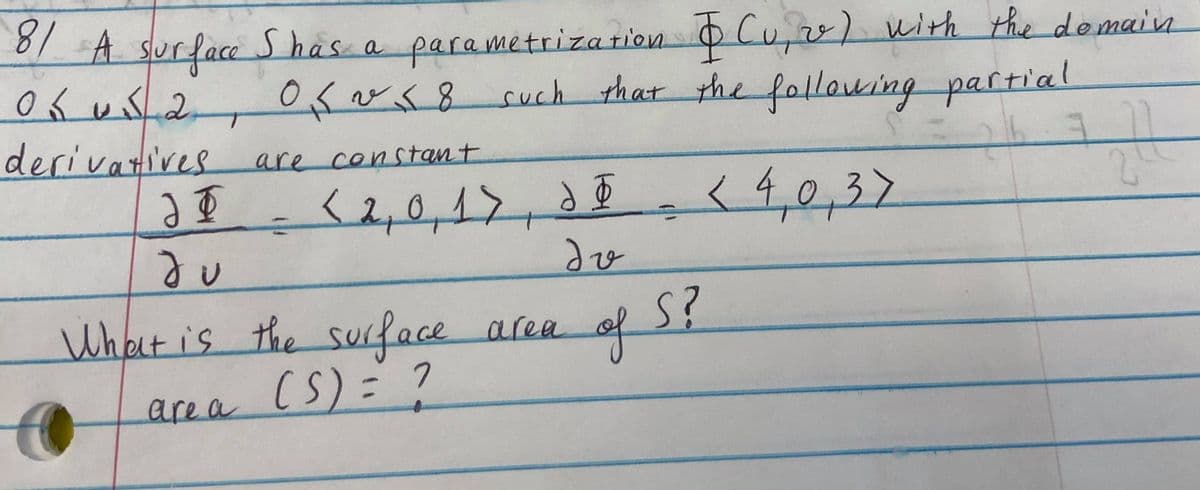 8/ A surface S has a parametrization Φ (u,v) with the domain
0 ≤ u ≤ 2, 0 ≤ v ≤ 8 such that the following partial
derivatives are constant
∂Φ/∂u = <2,0,1>, ∂Φ/∂v = <4,0,3>
What is the surface area of S?
area (S) = ?